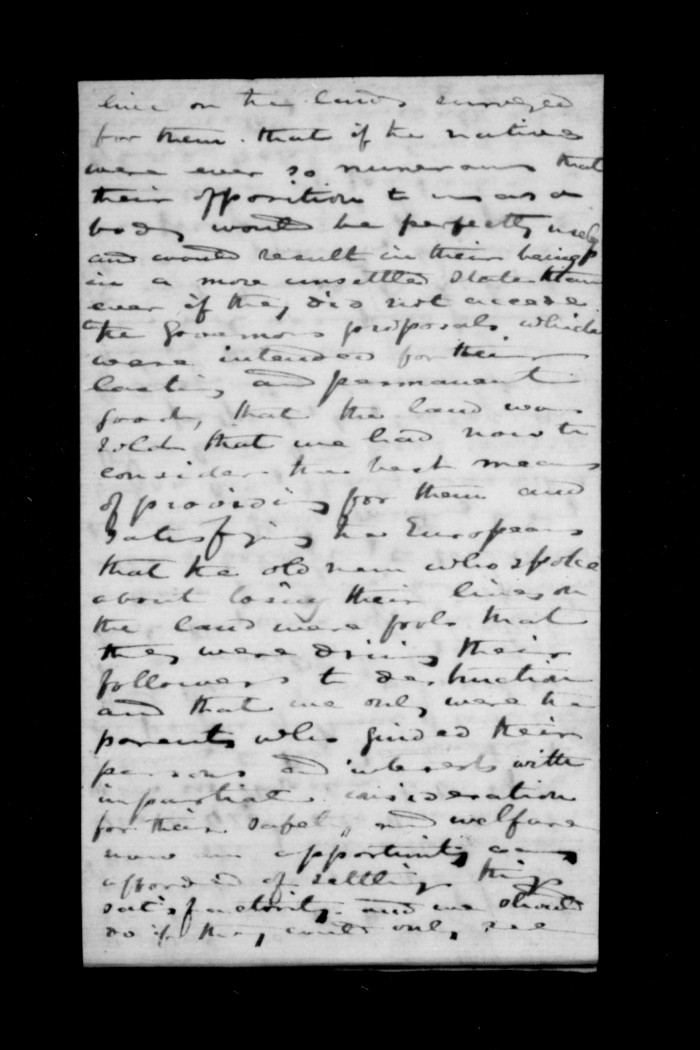 live on the lands surveyed
for them. that if the natives
were ever so numerous that
their opposition to us as a
body would be perfectly
and would result in their being
in a more unsettled state than
ever if they did not accede
the Governors proposals which
were intended for their
lasting and permanent
good, that the land was
sold that we had now to
consider the best means
of providing for them and
satisfying the Europeans
that the old men who spoke
about losing their lives on
the land were fools that
they were driving their
followers to destruction
and that we only were the
parents who guided their
persons and interests with
impartial consideration
for their safety and welfare
now an opportunity was
afforded of settling things
satisfactorily. and we should
do if they could only see